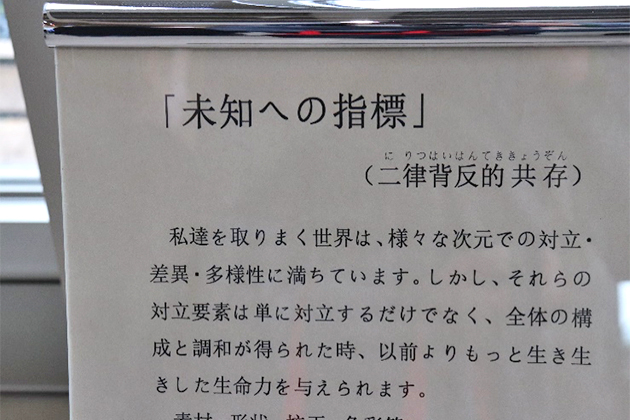 「未知への指標」
にりつはいはんてききょうぞん
（二律背反的共存）
私達を取りまく世界は、様々な次元での対立・
差異・多様性に満ちています。しかし、それらの
対立要素は単に対立するだけでなく、全体の構
成と調和が得られた時、以前よりもっと生き生
きした生命力を与えられます。